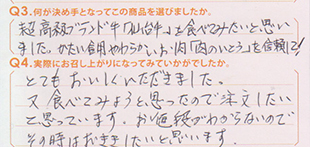 Q3.何が決め手となってこの商品を選びましたか。
超高級ブランド牛「仙台牛」を食べてみたいと思い
ました。かたい食用やわらかいお肉「肉のいとう」を信頼して!
Q4.実際にお召し上がりになってみていかがでしたか。
とてもおいしくいただきました。
又食べてみようと思ったので注文したい
と思っています。お値段がわからないので
その時はおききしたいと思います。